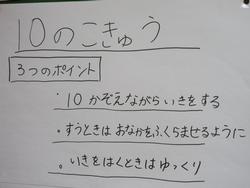 10のこきゅう
3つのポイント
・10 かぞえながらいきをする
・すうときは おなかをふくらませるように
。いきをはくときはゆっくり